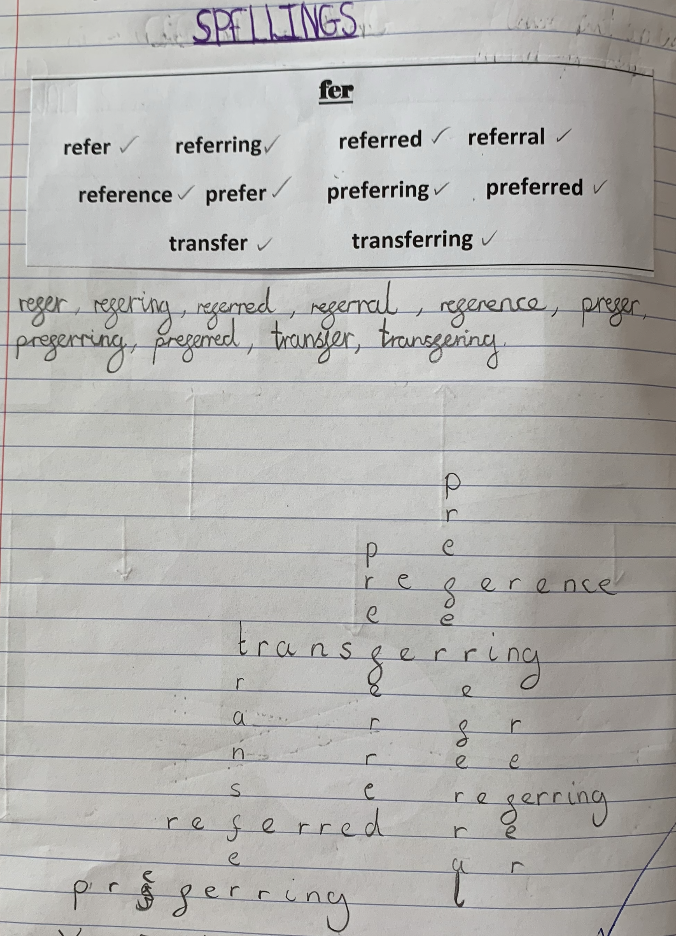 SPELLINGS
fer
refer ✓ referring ✓ referred ✓ referral ✓
reference ✓ prefer ✓ preferring ✓ preferred ✓
transfer ✓ transferring ✓
refer, refering, referred, referral, reference, prefer,
preferring, preferred, transfer, transfering.
prefer
preferred
reference
transferring
transfer
referral
refer
referring
referred
preferring